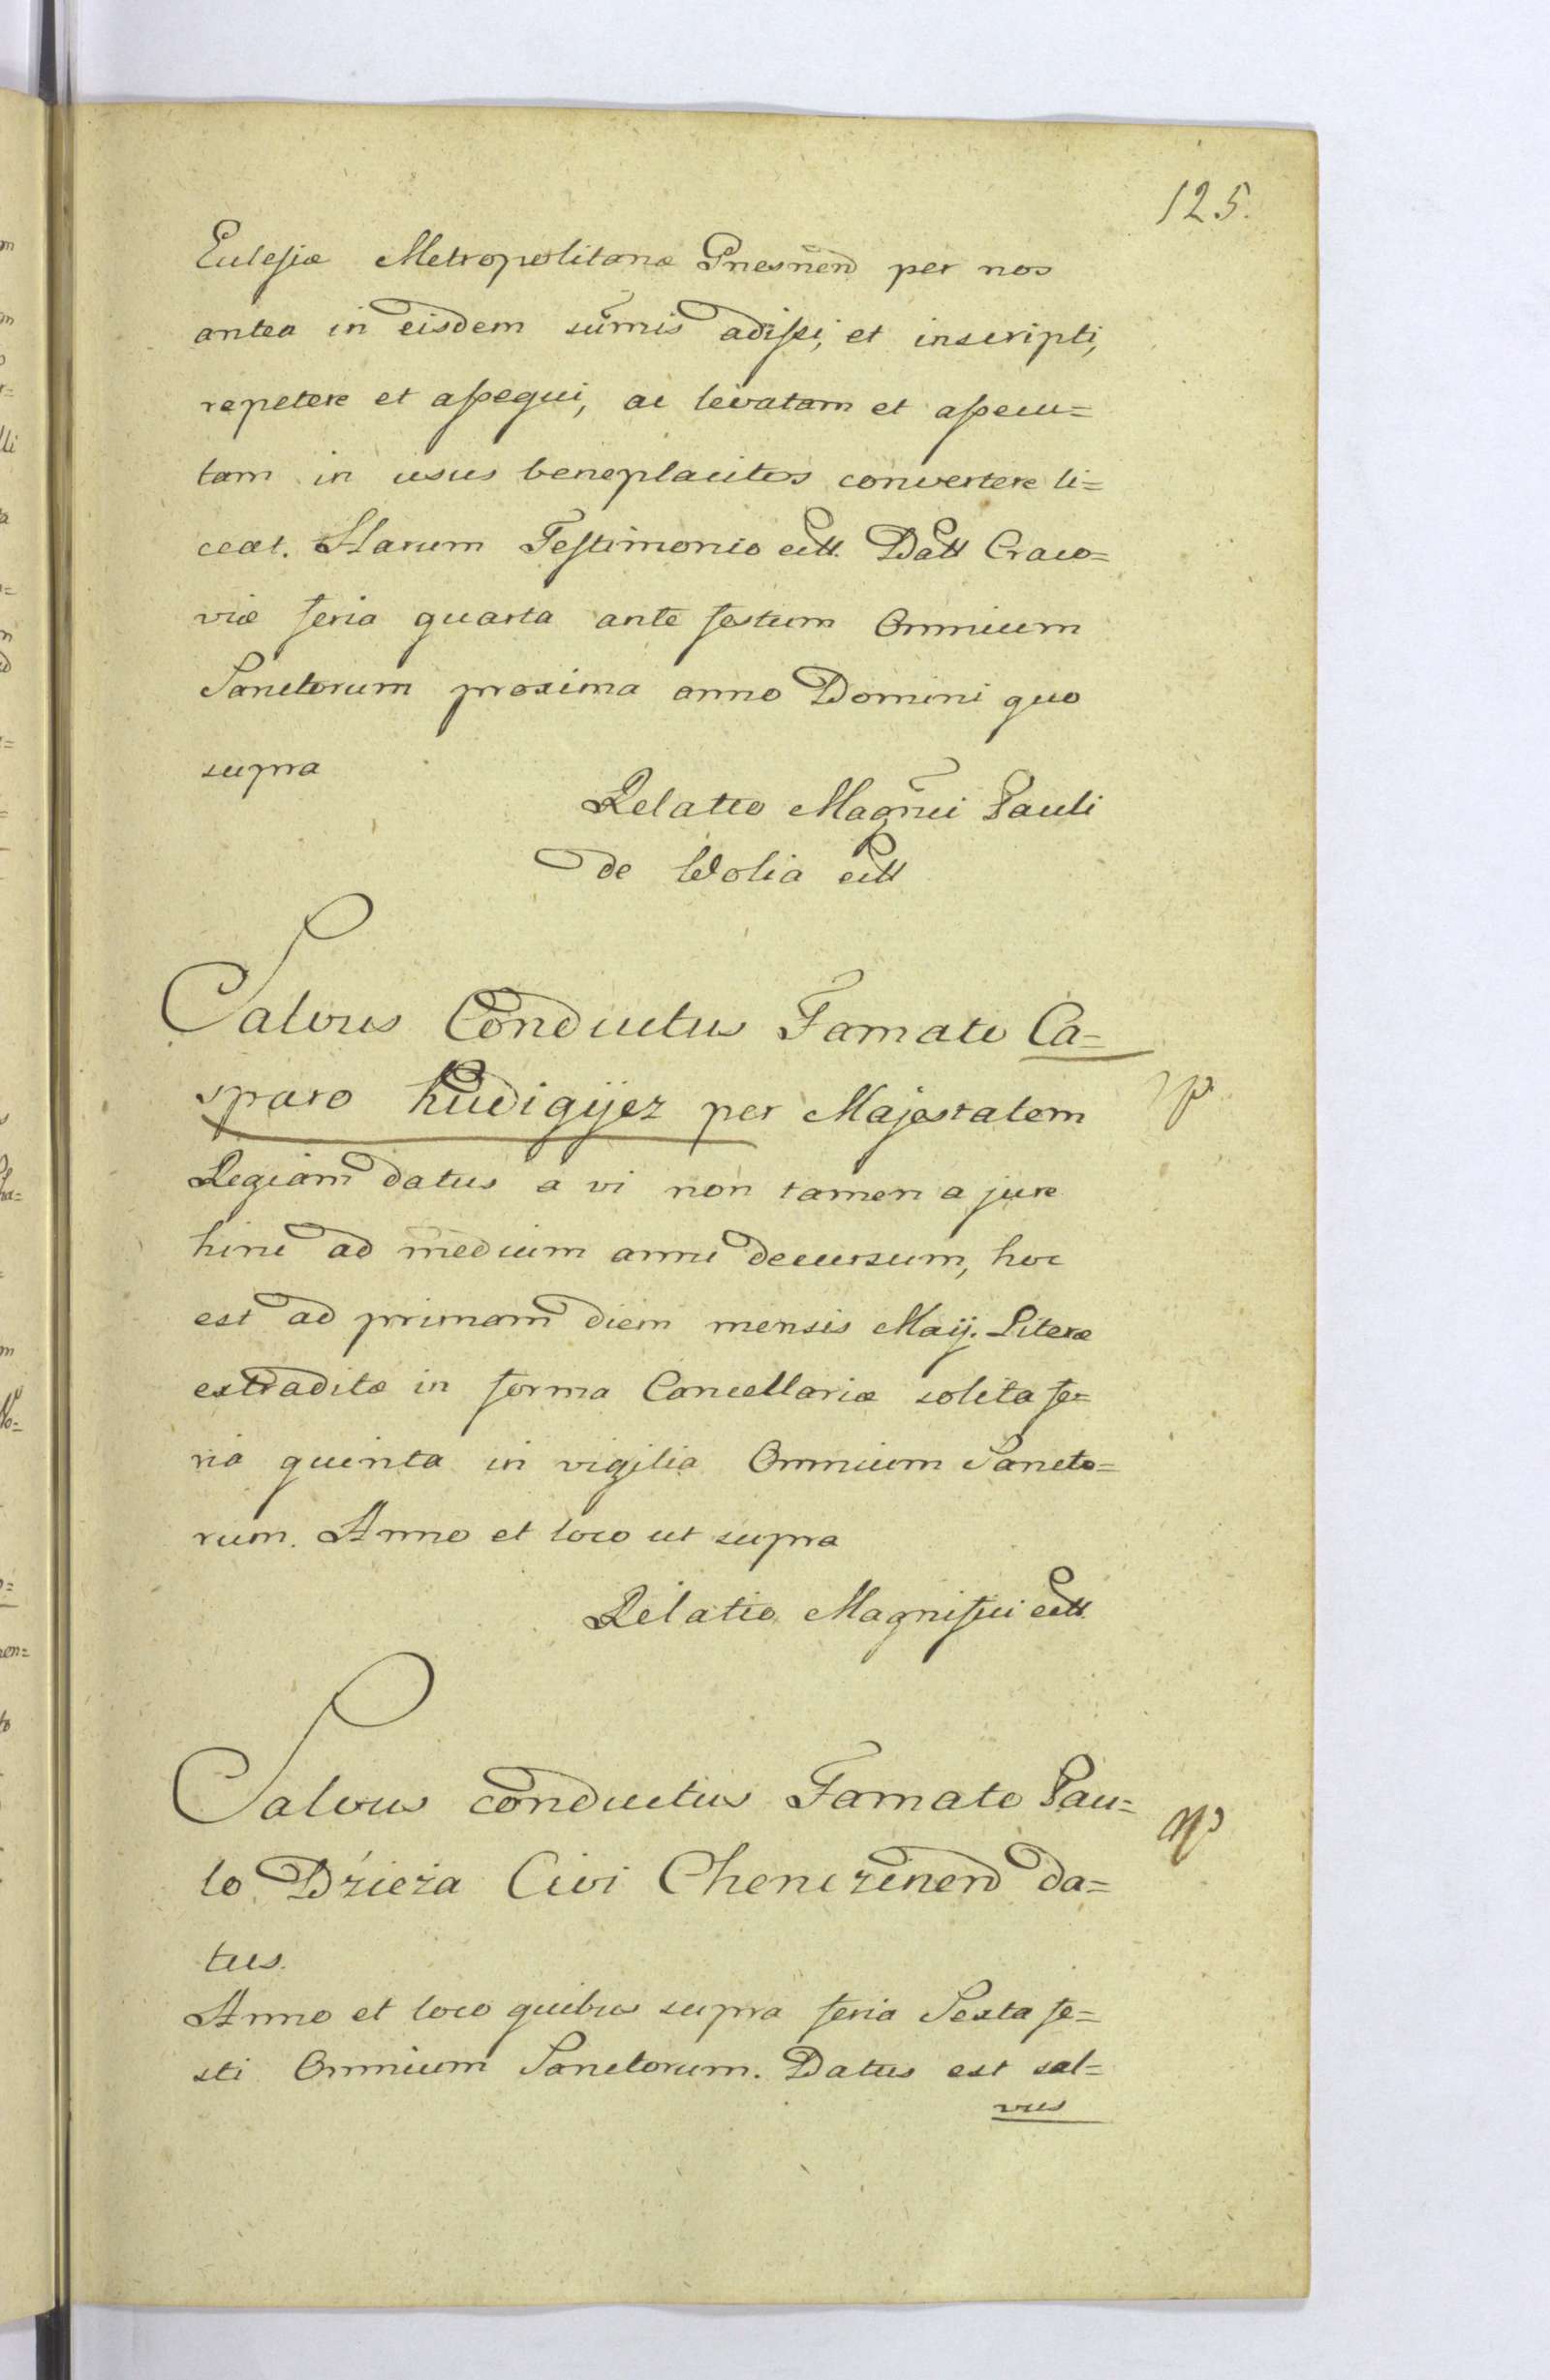 125.
Eulesiæ Metropolitanæ Gnesnen̄ per nos
antea in eisdem sūmis adissi, et inscripti,
repetere et assequi, ac levatam et assecu=
tam in usus beneplacitos convertere li=
ceat. Harum Testimonio ett. Datt Craco=
viæ feria quarta ante festum Omnium
Sanctorum proxima anno Domini quo
supra
Relatio Magn̄ci Pauli
de Wolia ett
Salvus Conductus Famato Ca=
sparo Rudigijez per Majestatem
Regiam datus a vi non tamen a jure
hinc ad medium anni decursum, hoc
est ad primam diem mensis Maij. Literæ
extraditæ in forma Cancellariæ solita fe=
ria quinta in vigilia Omnium Sancto=
rum. Anno et loco ut supra
Relatio Magnifici ett.
Salvus conductus Famato Pau=
lo Dzieża Civi Chenczinen̄ da=
tus.
Anno et loco quibus supra feria Sexta fe=
sti Omnium Sanctorum. Datus est sal=
vus